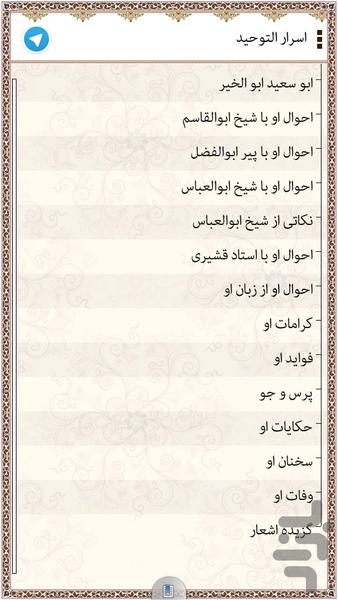 اسرار التوحید
ابو سعید ابو الخیر
احوال او با شیخ ابوالقاسم
احوال او با پیر ابوالفضل
احوال او با شیخ ابوالعباس
نکاتی از شیخ ابوالعباس
احوال او با استاد قشیری
احوال او از زبان او
کرامات او
فواید او
پرس و جو
حکایات او
سخنان او
وفات او
گزیده اشعار
بازار